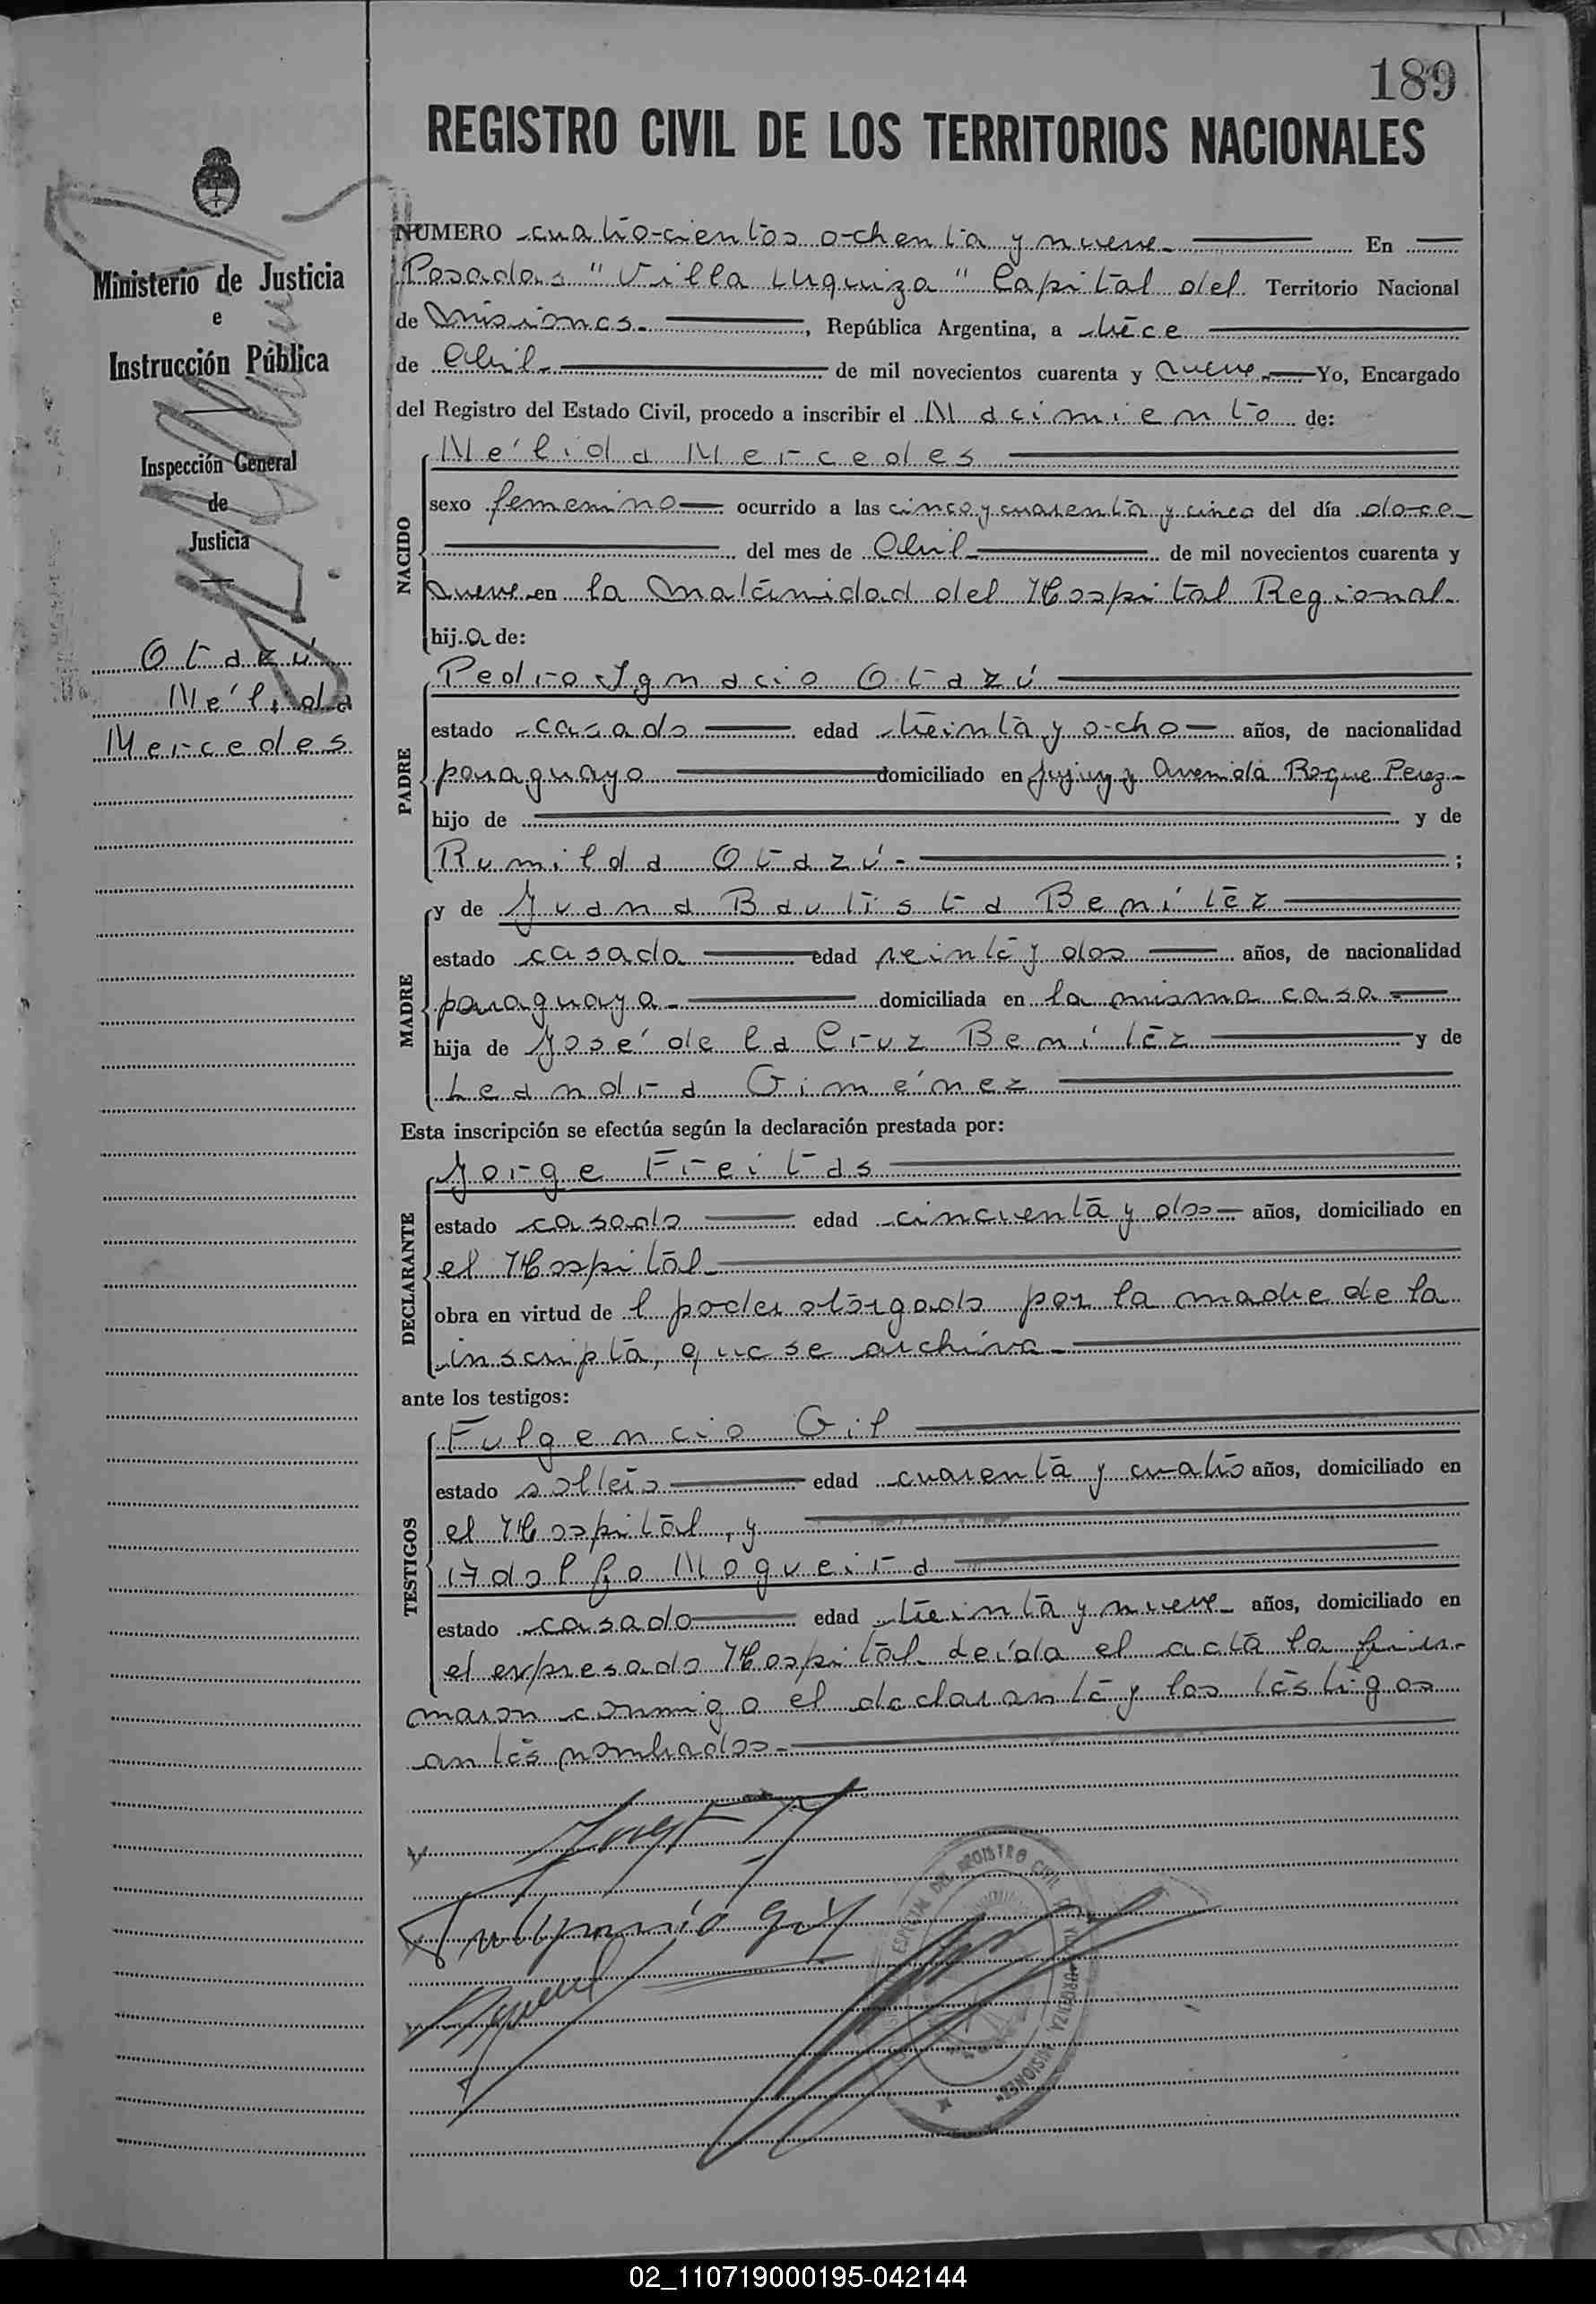 189
REGISTRO CIVIL DE LOS TERRITORIOS NACIONALES
Ministerio de Justicia
e
Instrucción Pública
Inspección General
de
Justicia
Otazú
Nélida
Mercedes
NUMERO cuatrocientos ochenta y nueve En
Posadas "Villa Urquiza" Capital del Territorio Nacional
de Misiones. , República Argentina, a trece
de Abril de mil novecientos cuarenta y nueve Yo, Encargado
del Registro del Estado Civil, procedo a inscribir el Nacimiento de:
NACIDO
Nélida Mercedes
sexo femenino ocurrido a las cinco y cuarenta y cinco del día doce
del mes de Abril de mil novecientos cuarenta y
nueve en la Maternidad del Hospital Regional.
hija de:
PADRE
Pedro Ignacio Otazú
estado casado edad treinta y ocho años, de nacionalidad
paraguayo domiciliado en Jujuy y Avenida Roque Perez
hijo de y de
Rumilda Otazú. ;
MADRE
y de Juana Bautista Benítez
estado casada edad veinte y dos años, de nacionalidad
paraguaya. domiciliada en la misma casa
hija de José de la Cruz Benítez y de
Leandra Giménez
Esta inscripción se efectúa según la declaración prestada por:
DECLARANTE
Jorge Freitas
estado casado edad cincuenta y dos años, domiciliado en
el Hospital
obra en virtud de l poder otorgado por la madre de la
inscripta, que se archiva.
ante los testigos:
TESTIGOS
Fulgencio Gil
estado soltero edad cuarenta y cuatro años, domiciliado en
el Hospital, y
Adolfo Nogueira
estado casado edad treinta y nueve años, domiciliado en
el expresado Hospital. Leída el acta la fir-
maron conmigo el declarante y los testigos
antes nombrados.
Fulgencio Gil
ESPECIAL DEL REGISTRO CIVIL VILLA URQUIZA, MISIONES
02_110719000195-042144